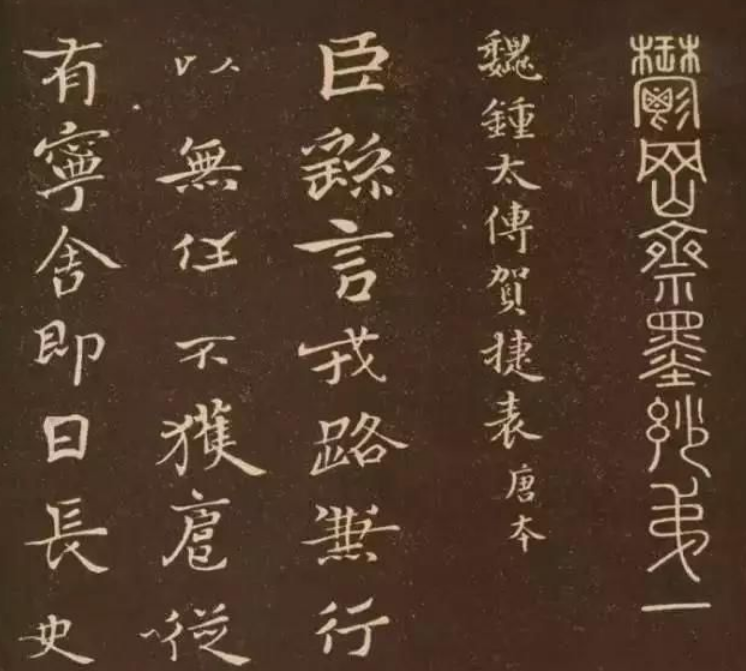 鬱岡齋墨妙弟一
魏鍾太傅賀捷表 唐本
臣繇言戎路兼行
以無任不獲扈從
有寧舍即日長史